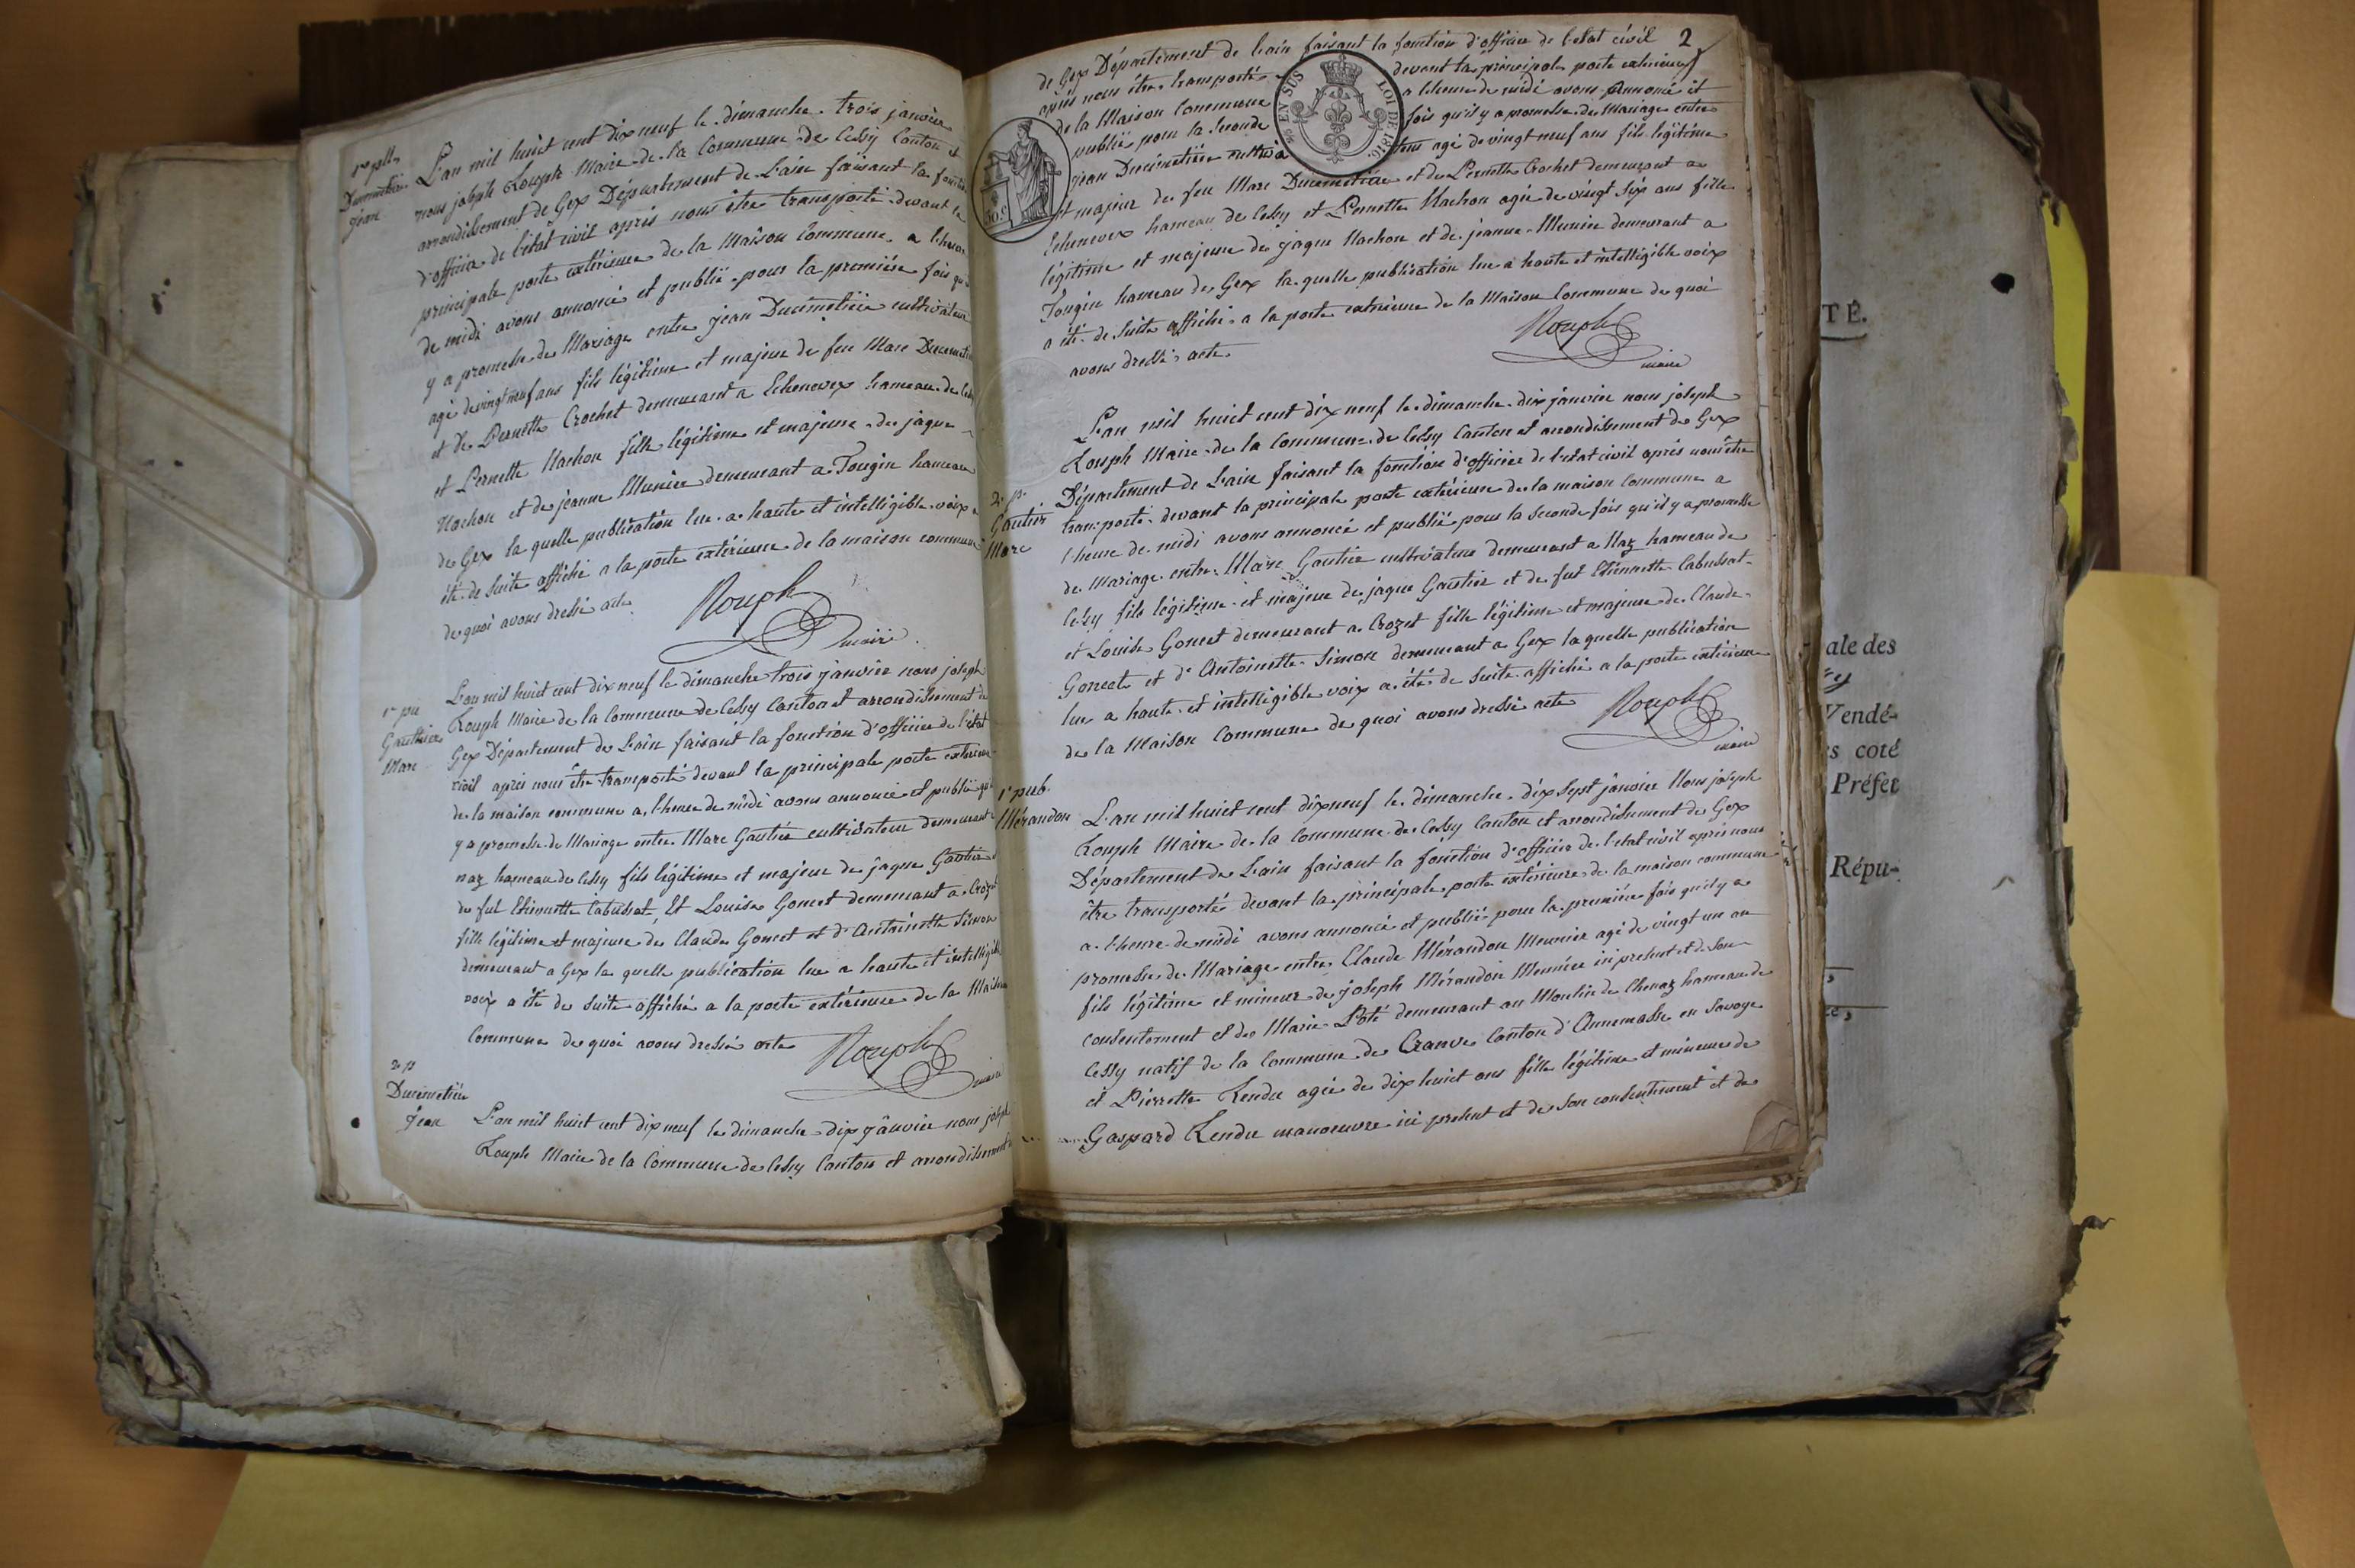 1re pub.
Ducimetière
Jean
L'an mil huict cent dix neuf le dimanche trois janvier
nous joseph Rouph Maire de la Commune de Cessy Canton et
arrondissement de Gex Département de L'ain faisant la fonction
d'officier de l'état civil après nous être transporté devant la
principale porte extérieure de la Maison Commune a lheure
de midi avons annoncé et publié pour la premiére fois qu'il
y a promesse de Mariage entre jean Ducimetière cultivateur
agé de vingt neuf ans fils légitime et majeur de feu Marc Ducimetière
et de Pernette Crochet demeurant a Echenevex hameau de Cessy
et Pernette Nachon fille légitime et majeure de jaque
Nachon et de jeanne Munier demeurant a Tougin hameau
de Gex la quelle publication lue a haute et intelligible voix a
été de suite affiché a la porte extérieure de la maison commune
de quoi avons dressé acte
Rouph
maire
1re pu
Gauthier
Marc
L'an mil huict cent dix neuf le dimanche trois janvier nous joseph
Rouph Maire de la Commune de Cessy Canton et arrondissement de
Gex Département de L'ain faisant la fonction d'officier de l'état
civil après nous être transporté devant la principale porte extérieure
de la maison commune a l'heure de midi avons annoncé et publié qu'il
y a promesse de Mariage entre Marc Gautier cultivateur demeurant a
naz hameau de Cessy fils légitime et majeur de jaque Gautier et
de fut Etiennette Cabussat, Et Louise Gonest demeurant a Crozet
fille légitime et majeure de Claude Gonest et d'Antoinette Simon
demeurant a Gex la quelle publication lue a haute et intelligible
voix a été de suite affiché a la porte extérieure de la Maison
Commune de quoi avons dressé acte
Rouph
maire
2e p
Ducimetière
Jean
L'an mil huict cent dix neuf le dimanche dix janvier nous joseph
Rouph Maire de la Commune de Cessy Canton et arrondissement
2
de Gex Département de L'ain faisant la fonction d'officier de l'etat civil
après nous être transporté devant la principale porte extérieure
de la Maison Commune a lheure de midi avons Annoncé et
publié pour la Seconde fois qu'il y a promesse de Mariage entre
jean Ducimetière cultiva teur agé de vingt neuf ans fils légitime
et majeur de feu Marc Ducimetière et de Pernette Crochet demeurant a
Echenevex hameau de Cessy et Pernette Nachon agée de vingt Six ans fille
légitime et majeure de jaque Nachon et de jeanne Munier demeurant a
Tougin hameau de Gex la quelle publication lue a haute et intelligible voix
a été de Suite affiché a la porte extérieure de la Maison Commune de quoi
avons dressé acte
Rouph
maire
EN SUS
LOI DE 1816.
50 C
2e p.
Gautier
Marc
L'an mil huict cent dix neuf le dimanche dix janvier nous joseph
Rouph Maire de la Commune de Cessy Canton et arrondissement de Gex
Département de L'ain faisant la fonction d'officier de l'etat civil après nous être
transporté devant la principale porte extérieure de la maison Commune a
l'heure de midi avons annoncé et publié pour la Seconde fois qu'il y a promesse
de Mariage entre Marc Gautier cultivateur demeurant a Naz hameau de
Cessy fils légitime et majeur de jaque Gautier et de fut Etiennette Cabussat
et Louise Gonest demeurant a Crozet fille légitime et majeure de Claude
Gonest et d'Antoinette Simon demeurant a Gex la quelle publication
lue a haute et intelligible voix a été de Suite affiché a la porte extérieure
de la Maison Commune de quoi avons dressé acte
Rouph
maire
1re pub.
Mérandon
L'an mil huict cent dix neuf le dimanche dix Sept janvier Nous joseph
Rouph Maire de la Commune de Cessy Canton et arrondissement de Gex
Département de L'ain faisant la fonction d'officier de l'etat civil après nous
être transporté devant la principale porte extérieure de la maison commune
a l'heure de midi avons annoncé et publié pour la première fois qu'il y a
promesse de Mariage entre Claude Mérandon Meunier agé de vingt un an
fils légitime et mineur de joseph Mérandon Meunier ici présent et de Son
consentement et de Marie Poté demeurant au Moulin de Chenaz hameau de
Cessy natif de la Commune de Cranve Canton d'Annemasse en Savoye
et Pierrette Rendu agée de dix huict ans fille légitime et mineure de
Gaspard Rendu manoeuvre ici présent et de Son consentement et de
TÉ.
ale des
Vendé-
s coté
Préfet
Répu-